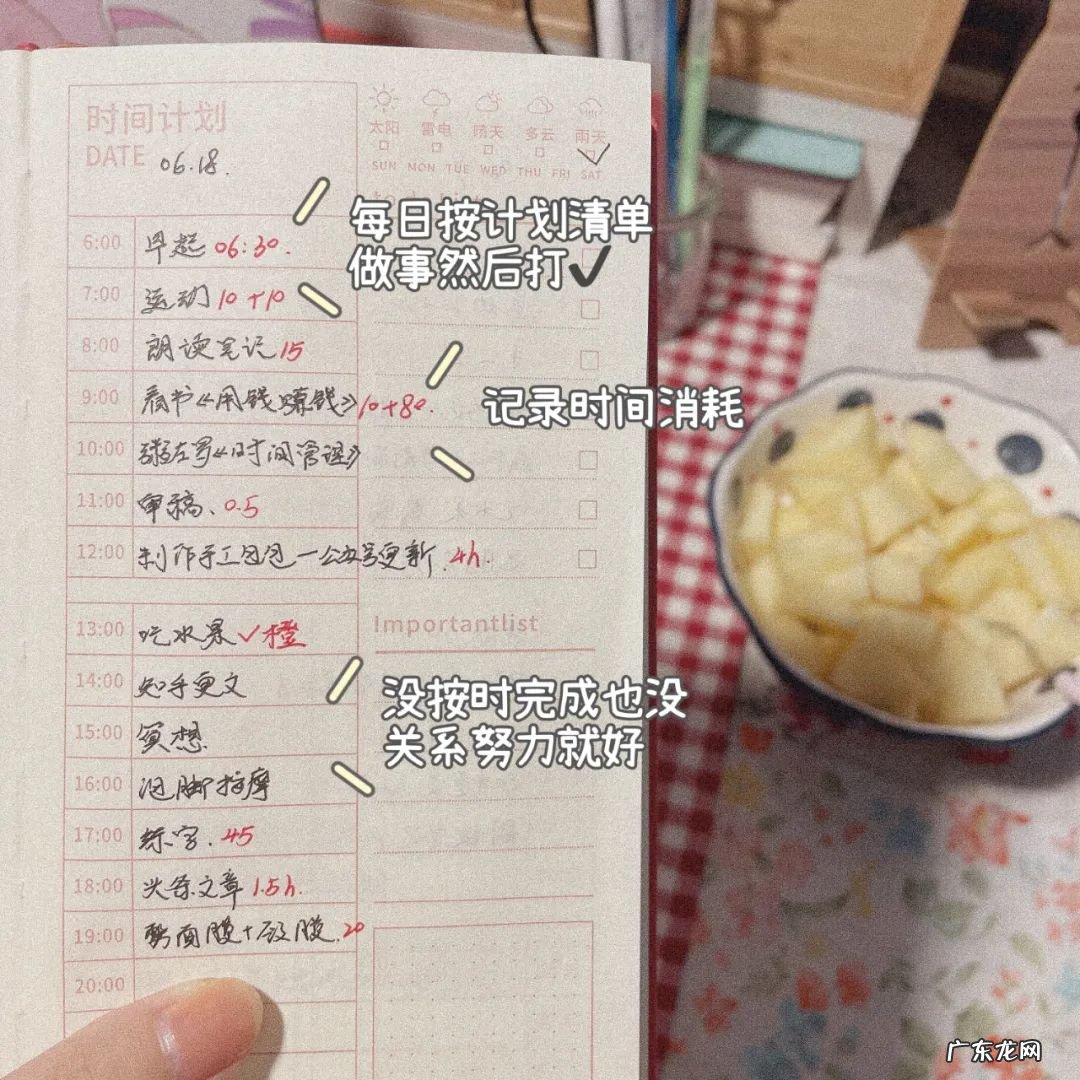 时间计划
DATE 06.18.
太阳 雷电 晴天 多云 雨天
SUN MON TUE WED THU FRI SAT
每日按计划清单
做事然后打✓
6:00 早起 06:30.
7:00 运动 10+10
8:00 朗读笔记 15
记录时间消耗
9:00 看书《用钱赚钱》10+80.
10:00 《时间管理》
11:00 审稿、0.5
12:00 制作手工包包—公众号更新. 4h.
Importantlist
13:00 吃水果✓橙
14:00 知乎更文
没按时完成也没
关系努力就好
15:00 冥想
16:00 泡脚按摩
17:00 练字. 45
18:00 头条文章 1.5h.
19:00 面膜+ 膜. 20
20:00
广东龙网